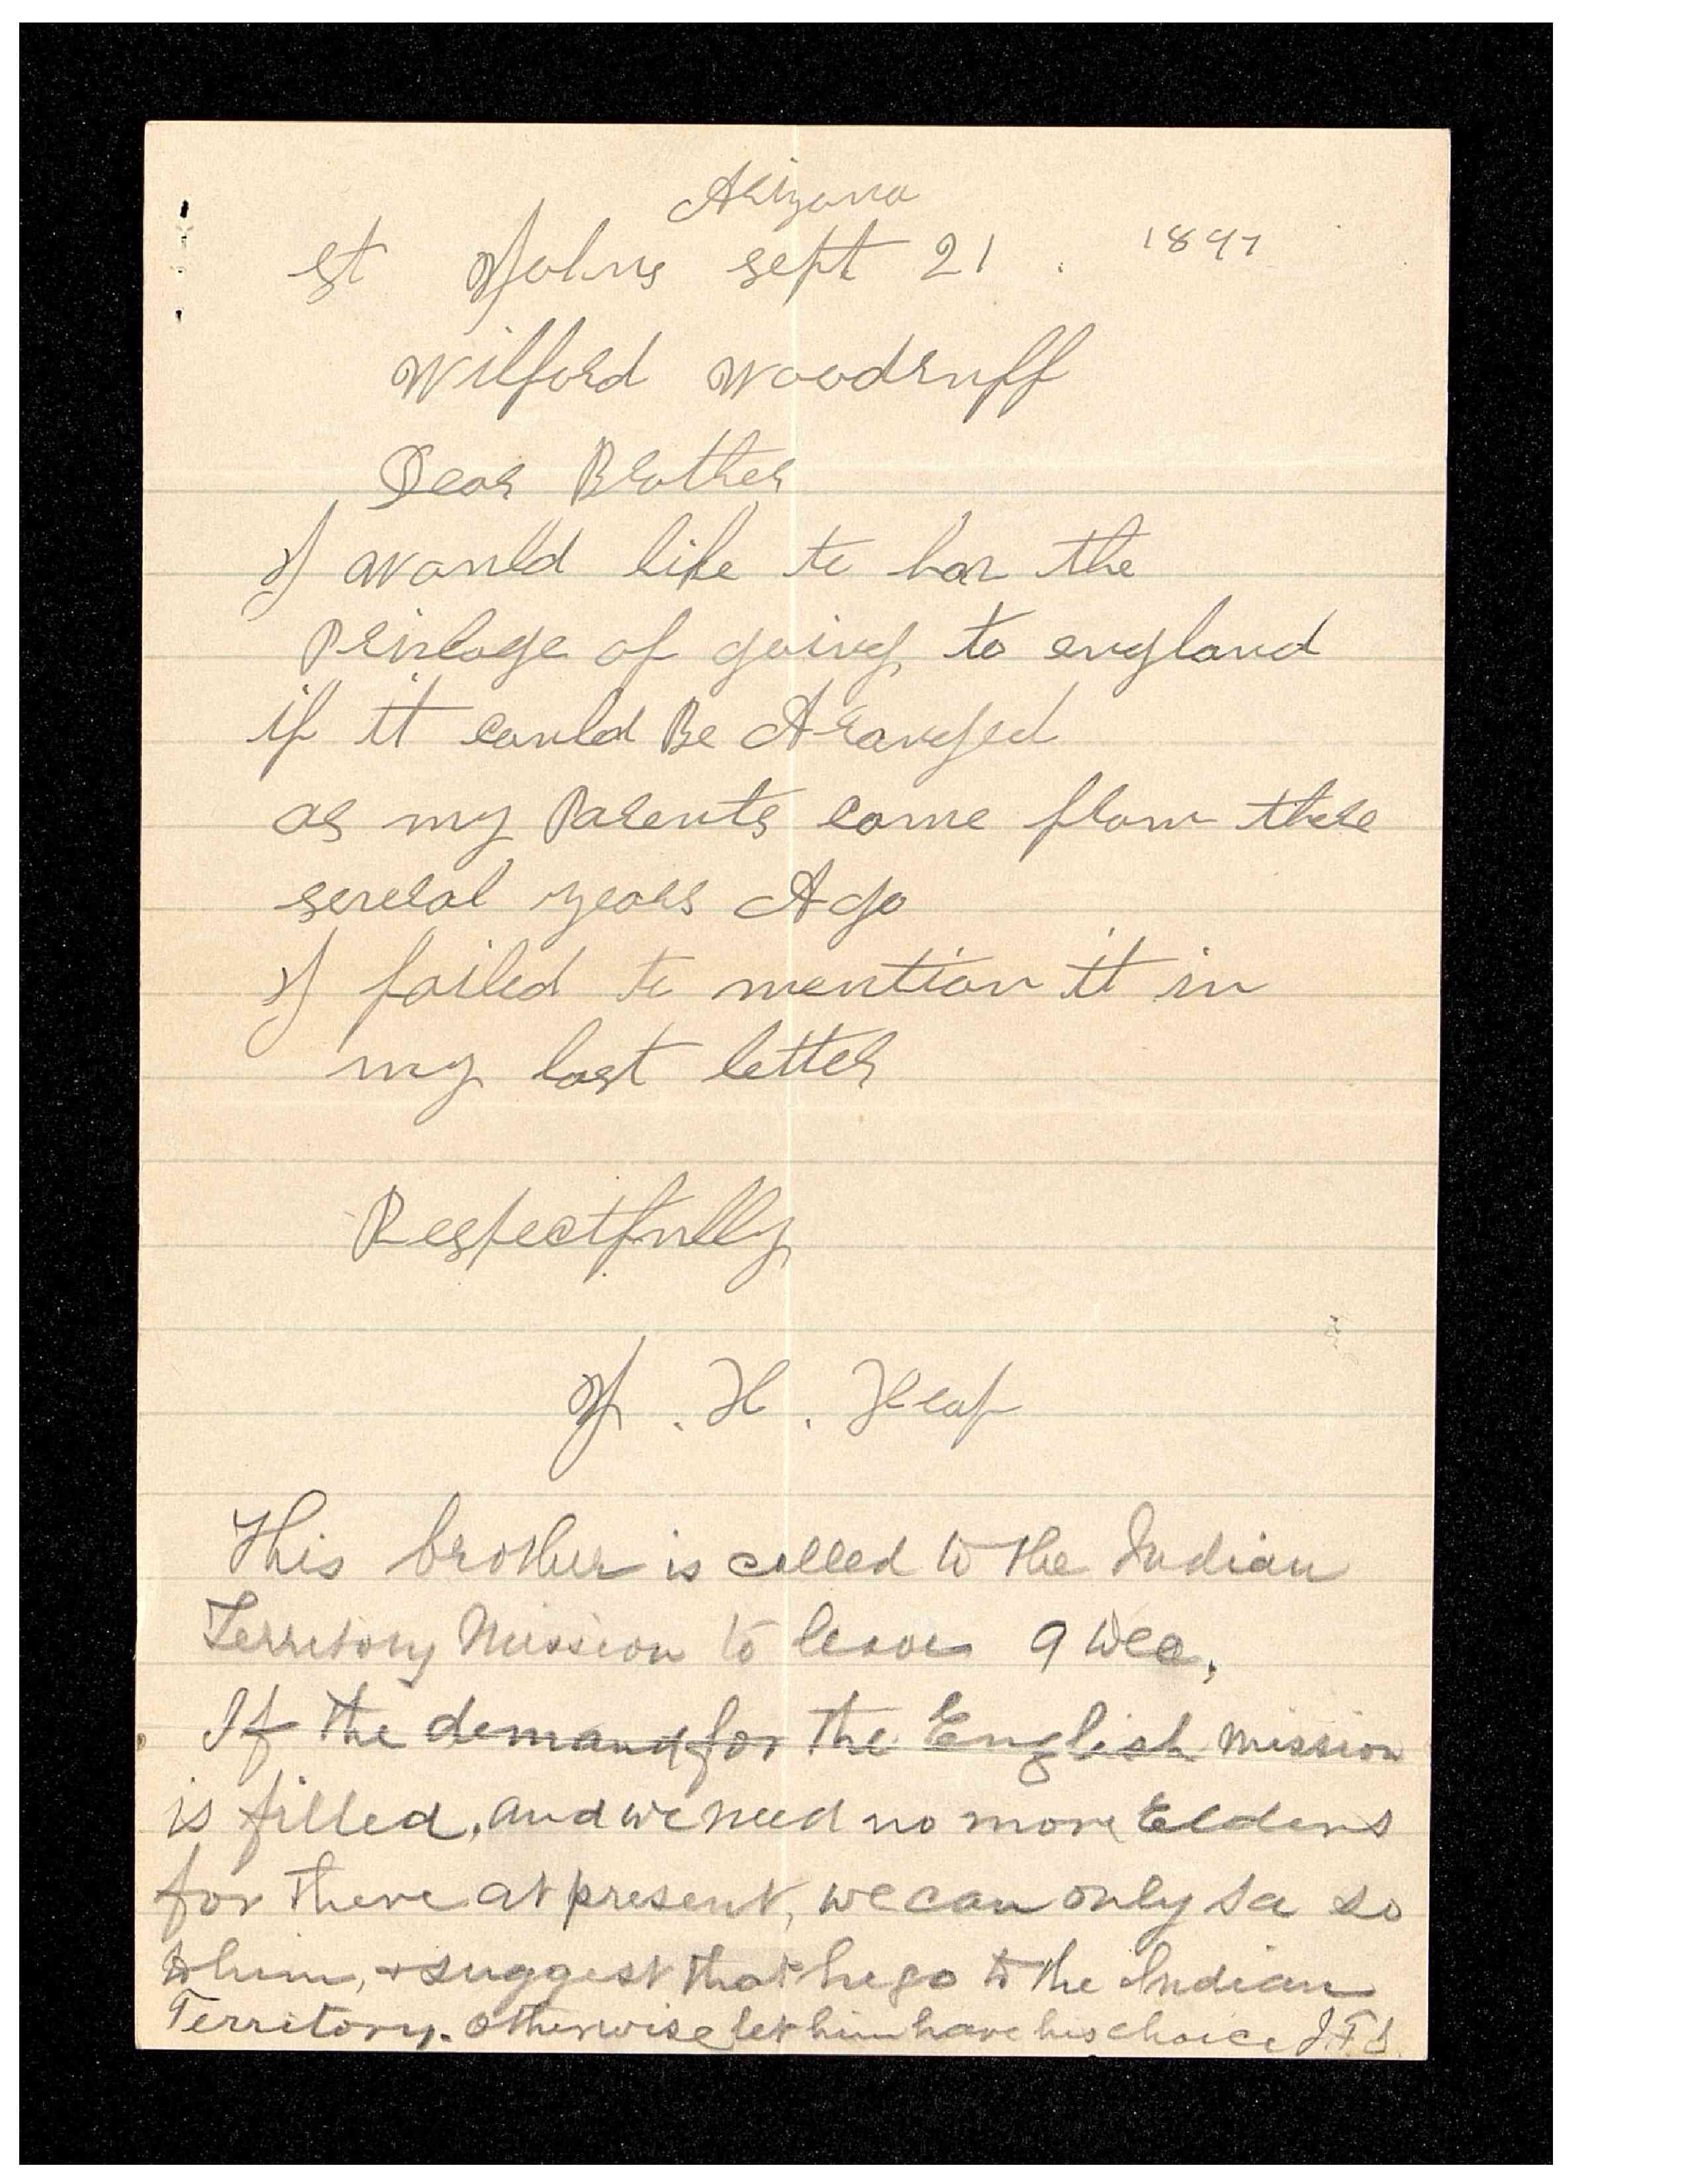 Arizona
st Johns sept 21. 1897
Wilford Woodruff
Dear Brother
I would like to hav the
Privlage of going to england
if it could Be Aranged
as my Parents came from there
several years Ago
I failed to mention it in
my last letter
Respectfully
J. H. Heap
This brother is called to the Indian
Territory Mission to leave 9
If the demand for the English mission
is filled, and we need no more Elders
for there at present, we can only sa so
to him, & suggest that he go to the Indian
Territory. otherwise let him have his choice J.F.S.